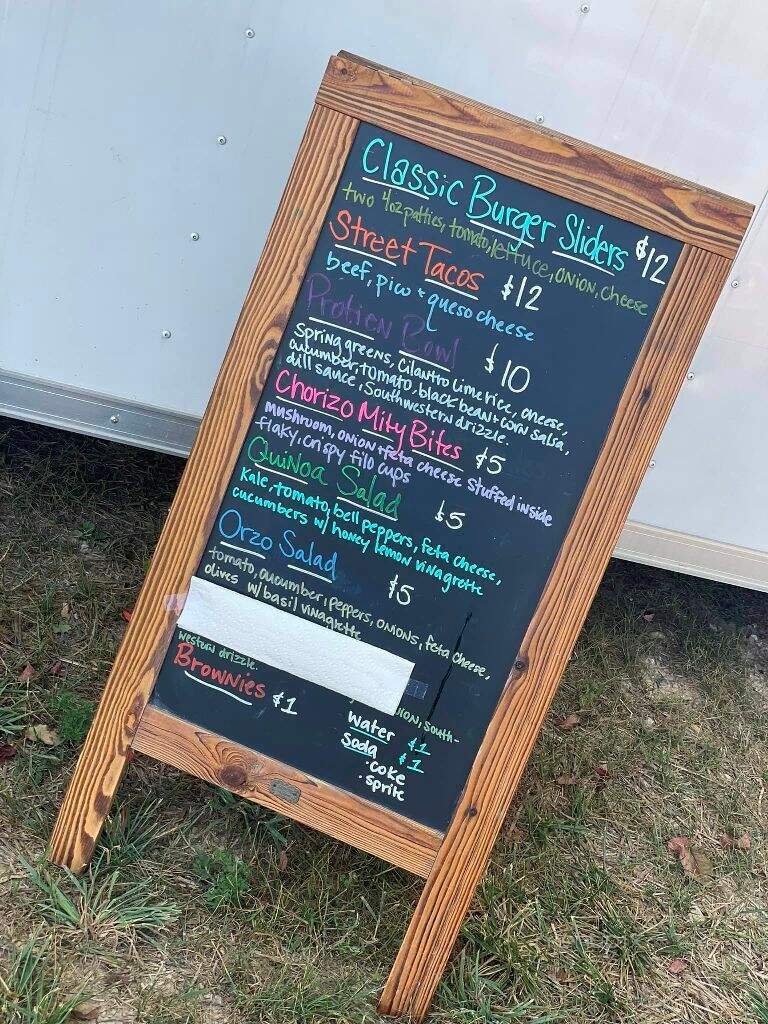 Classic Burger Sliders $12
two 4oz patties, tomato, lettuce, onion, cheese
Street Tacos $12
beef, pico + queso cheese
Protien Bowl $10
Spring greens, Cilantro Lime rice, cheese,
cucumber, tomato, black bean + corn salsa,
dill sauce, Southwestern drizzle.
Chorizo Mity Bites $5
mushroom, onion + feta cheese stuffed inside
flaky, crispy filo cups
Quinoa Salad $5
Kale, tomato, bell peppers, feta cheese,
cucumbers w/ honey lemon vinagrette
Orzo Salad $5
tomato, cucumber, peppers, onions, feta cheese,
olives w/ basil vinagrette
South-
western drizzle.
Brownies $1
Water $1
Soda $1
·coke
·sprite